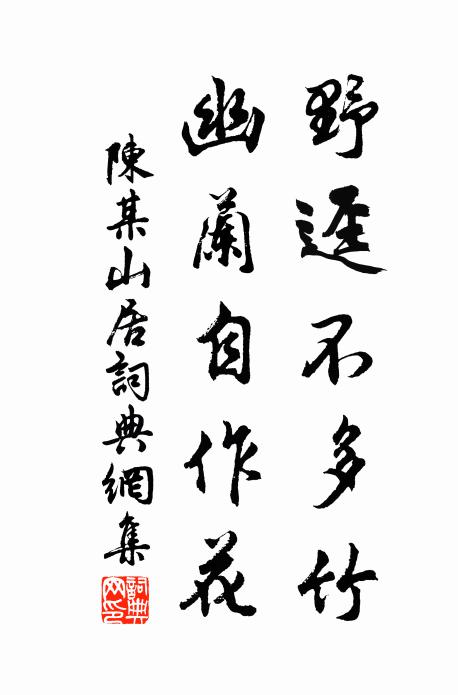 野逕不多竹
幽蘭自作花
陳某山居詞典網集
詞典網印